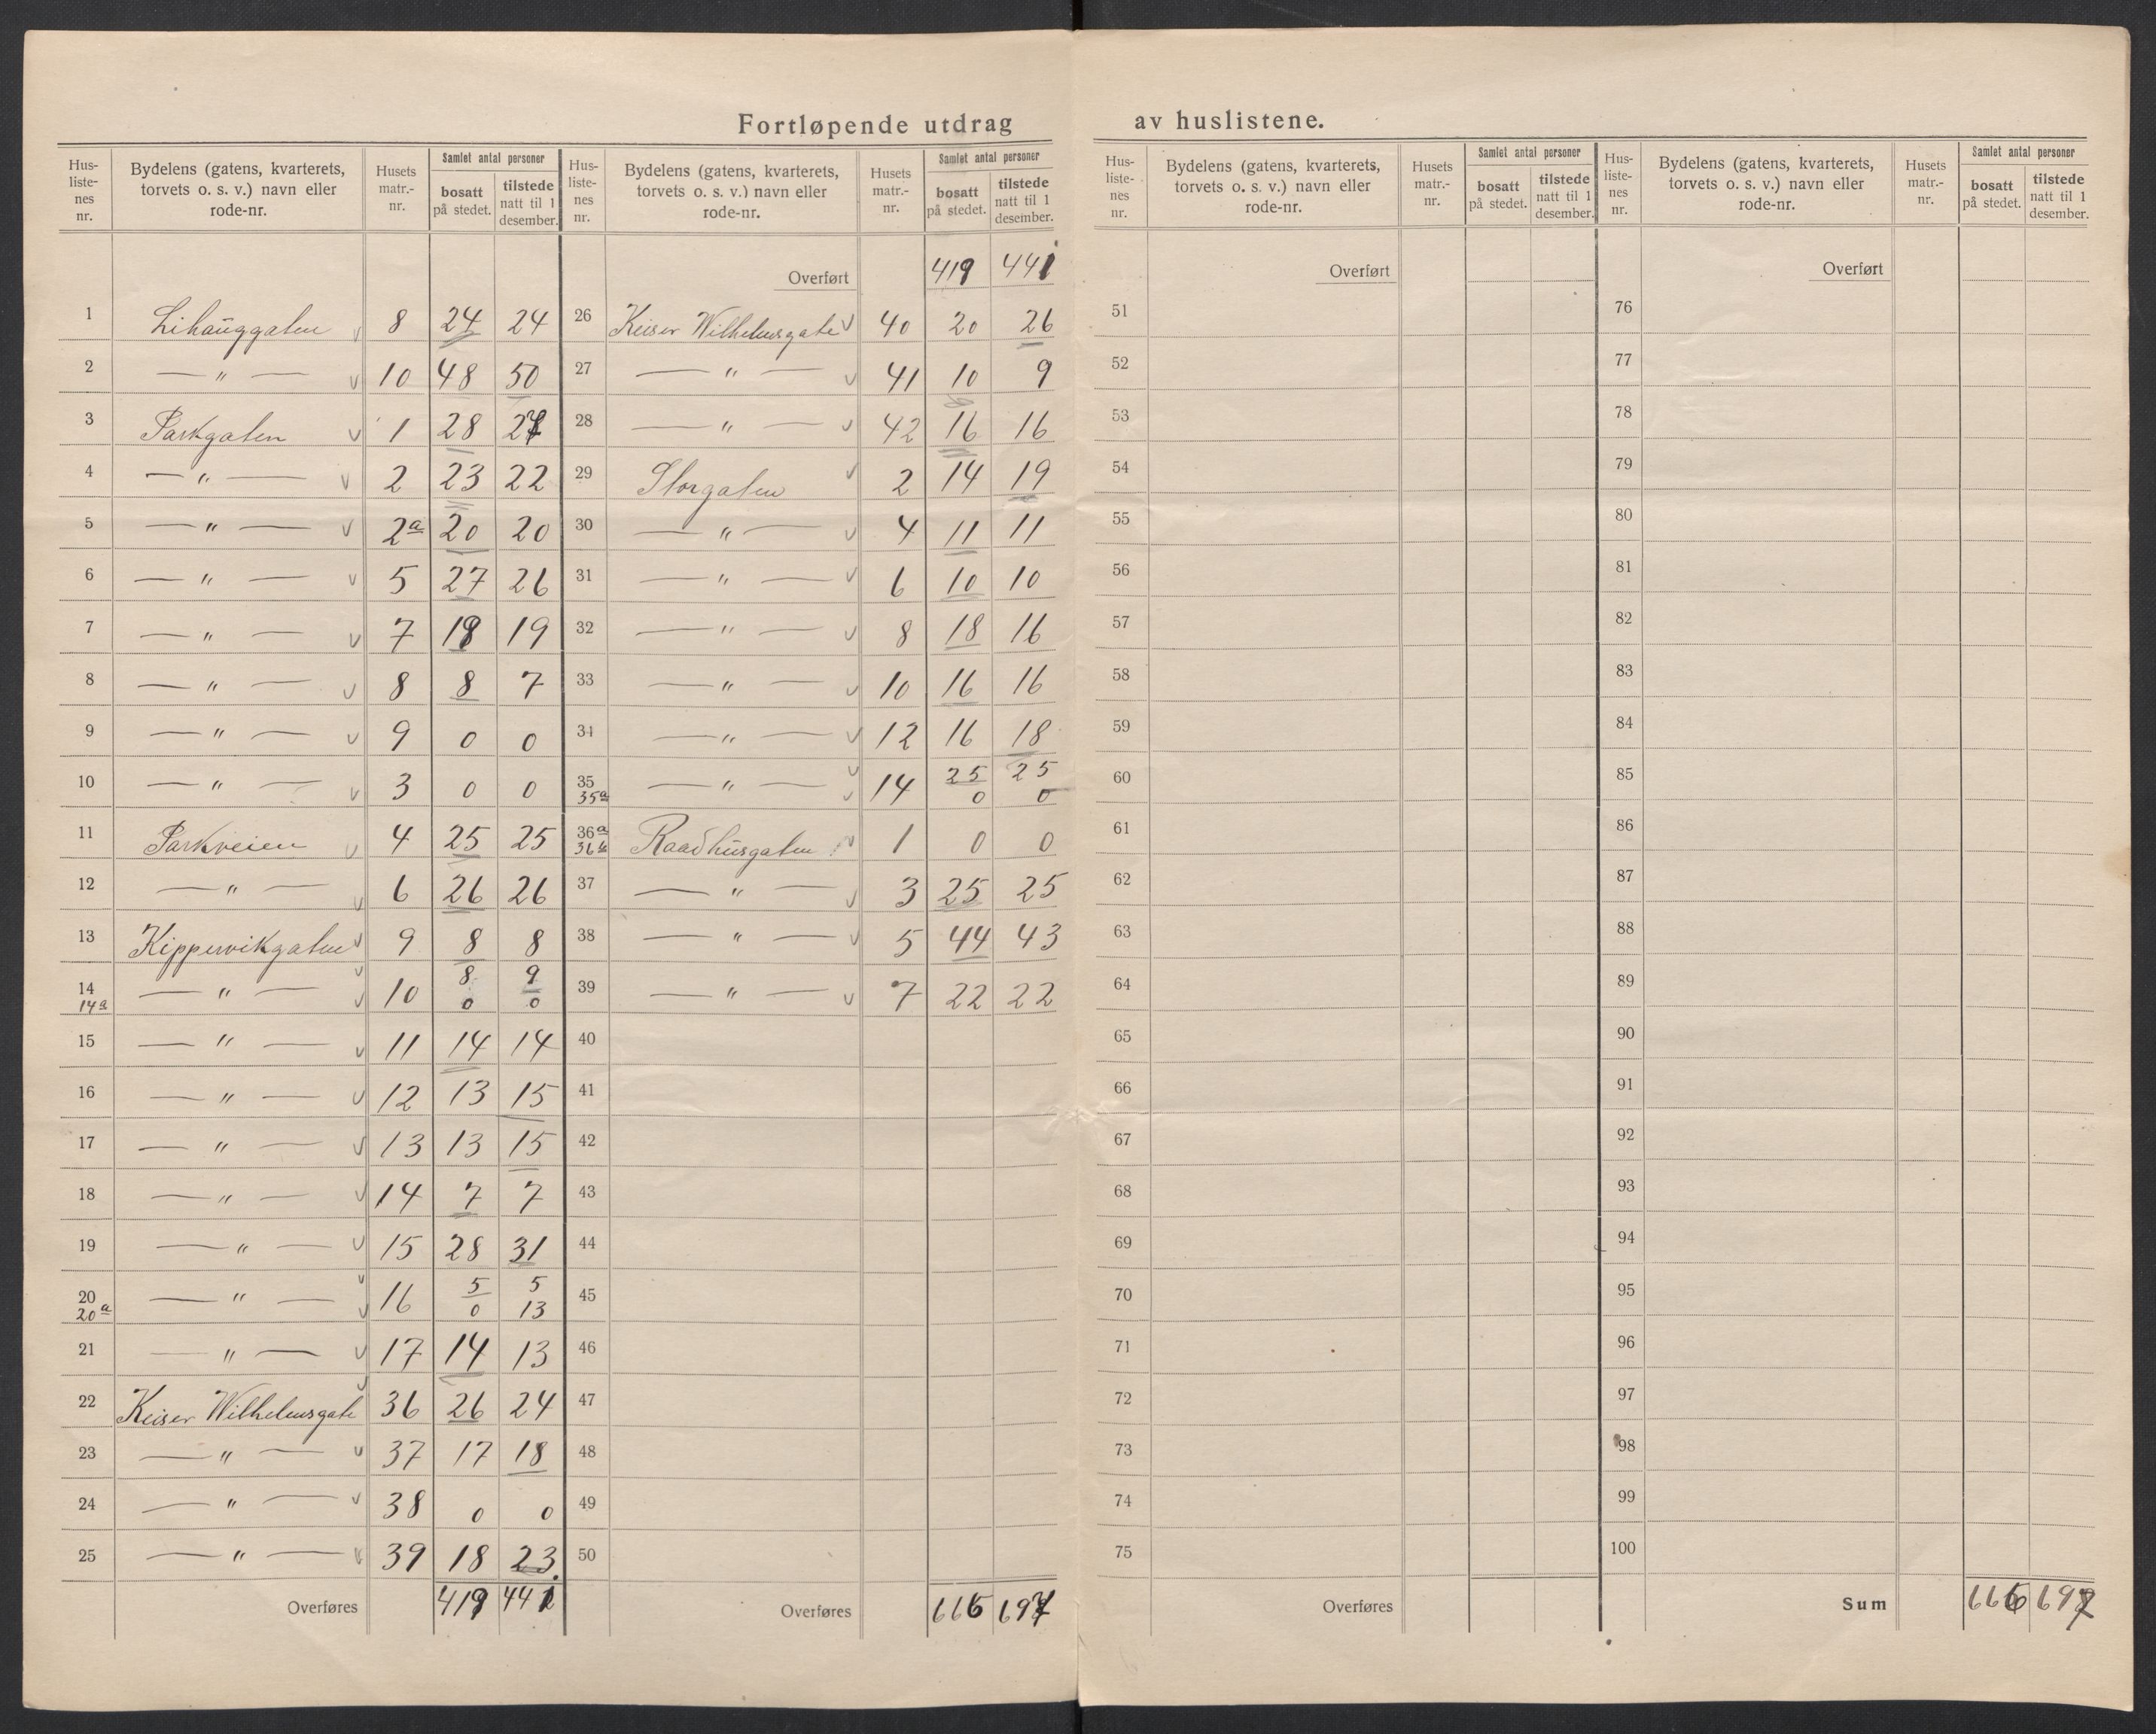 Fortløpende utdrag av huslistene.
Hus-liste-nes nr. | Bydelens (gatens, kvarterets, torvets o. s. v.) navn eller rode-nr. | Husets matr.-nr. | Samlet antal personer bosatt på stedet. | tilstede natt til 1 desember.
1 Lihauggaten 8 24 24
2 — " — 10 48 50
3 Parkgaten 1 28
4 — " — 2 23 22
5 — " — 2a 20 20
6 — " — 5 27 26
7 — " — 7 18 19
8 — " — 8 8 7
9 — " — 9 0 0
10 — " — 3 0 0
11 Parkveien 4 25 25
12 — " — 6 26 26
13 Kippervikgaten 9 8 8
14 — " — 10 8 9
14a 0 0
15 — " — 11 14 14
16 — " — 12 13 15
17 — " — 13 13 15
18 — " — 14 7 7
19 — " — 15 28 31
20 — " — 16 5 5
20a 0 13
21 — " — 17 14 13
22 Keiser Wilhelmsgate 36 26 24
23 — " — 37 17 18
24 — " — 38 0 0
25 — " — 39 18 23.
Overføres 419 441
Hus-liste-nes nr. | Bydelens (gatens, kvarterets, torvets o. s. v.) navn eller rode-nr. | Husets matr.-nr. | Samlet antal personer bosatt på stedet. | tilstede natt til 1 desember.
Overført 419 441
26 Keiser Wilhelmsgate 40 20 26
27 — " — 41 10 9
28 — " — 42 16 16
29 Storgaten 2 14 19
30 — " — 4 11 11
31 — " — 6 10 10
32 — " — 8 18 16
33 — " — 10 16 16
34 — " — 12 16 18
35 — " — 14 25 25
35a 0 0
36a Raadhusgaten 1 0 0
36b
37 — " — 3 25 25
38 — " — 5 44 43
39 — " — 7 22 22
40
41
42
43
44
45
46
47
48
49
50
Overføres 666 697
Hus-liste-nes nr. | Bydelens (gatens, kvarterets, torvets o. s. v.) navn eller rode-nr. | Husets matr.-nr. | Samlet antal personer bosatt på stedet. | tilstede natt til 1 desember.
Overført
51
52
53
54
55
56
57
58
59
60
61
62
63
64
65
66
67
68
69
70
71
72
73
74
75
Overføres
Hus-liste-nes nr. | Bydelens (gatens, kvarterets, torvets o. s. v.) navn eller rode-nr. | Husets matr.-nr. | Samlet antal personer bosatt på stedet. | tilstede natt til 1 desember.
Overført
76
77
78
79
80
81
82
83
84
85
86
87
88
89
90
91
92
93
94
95
96
97
98
99
100
Sum 666 697